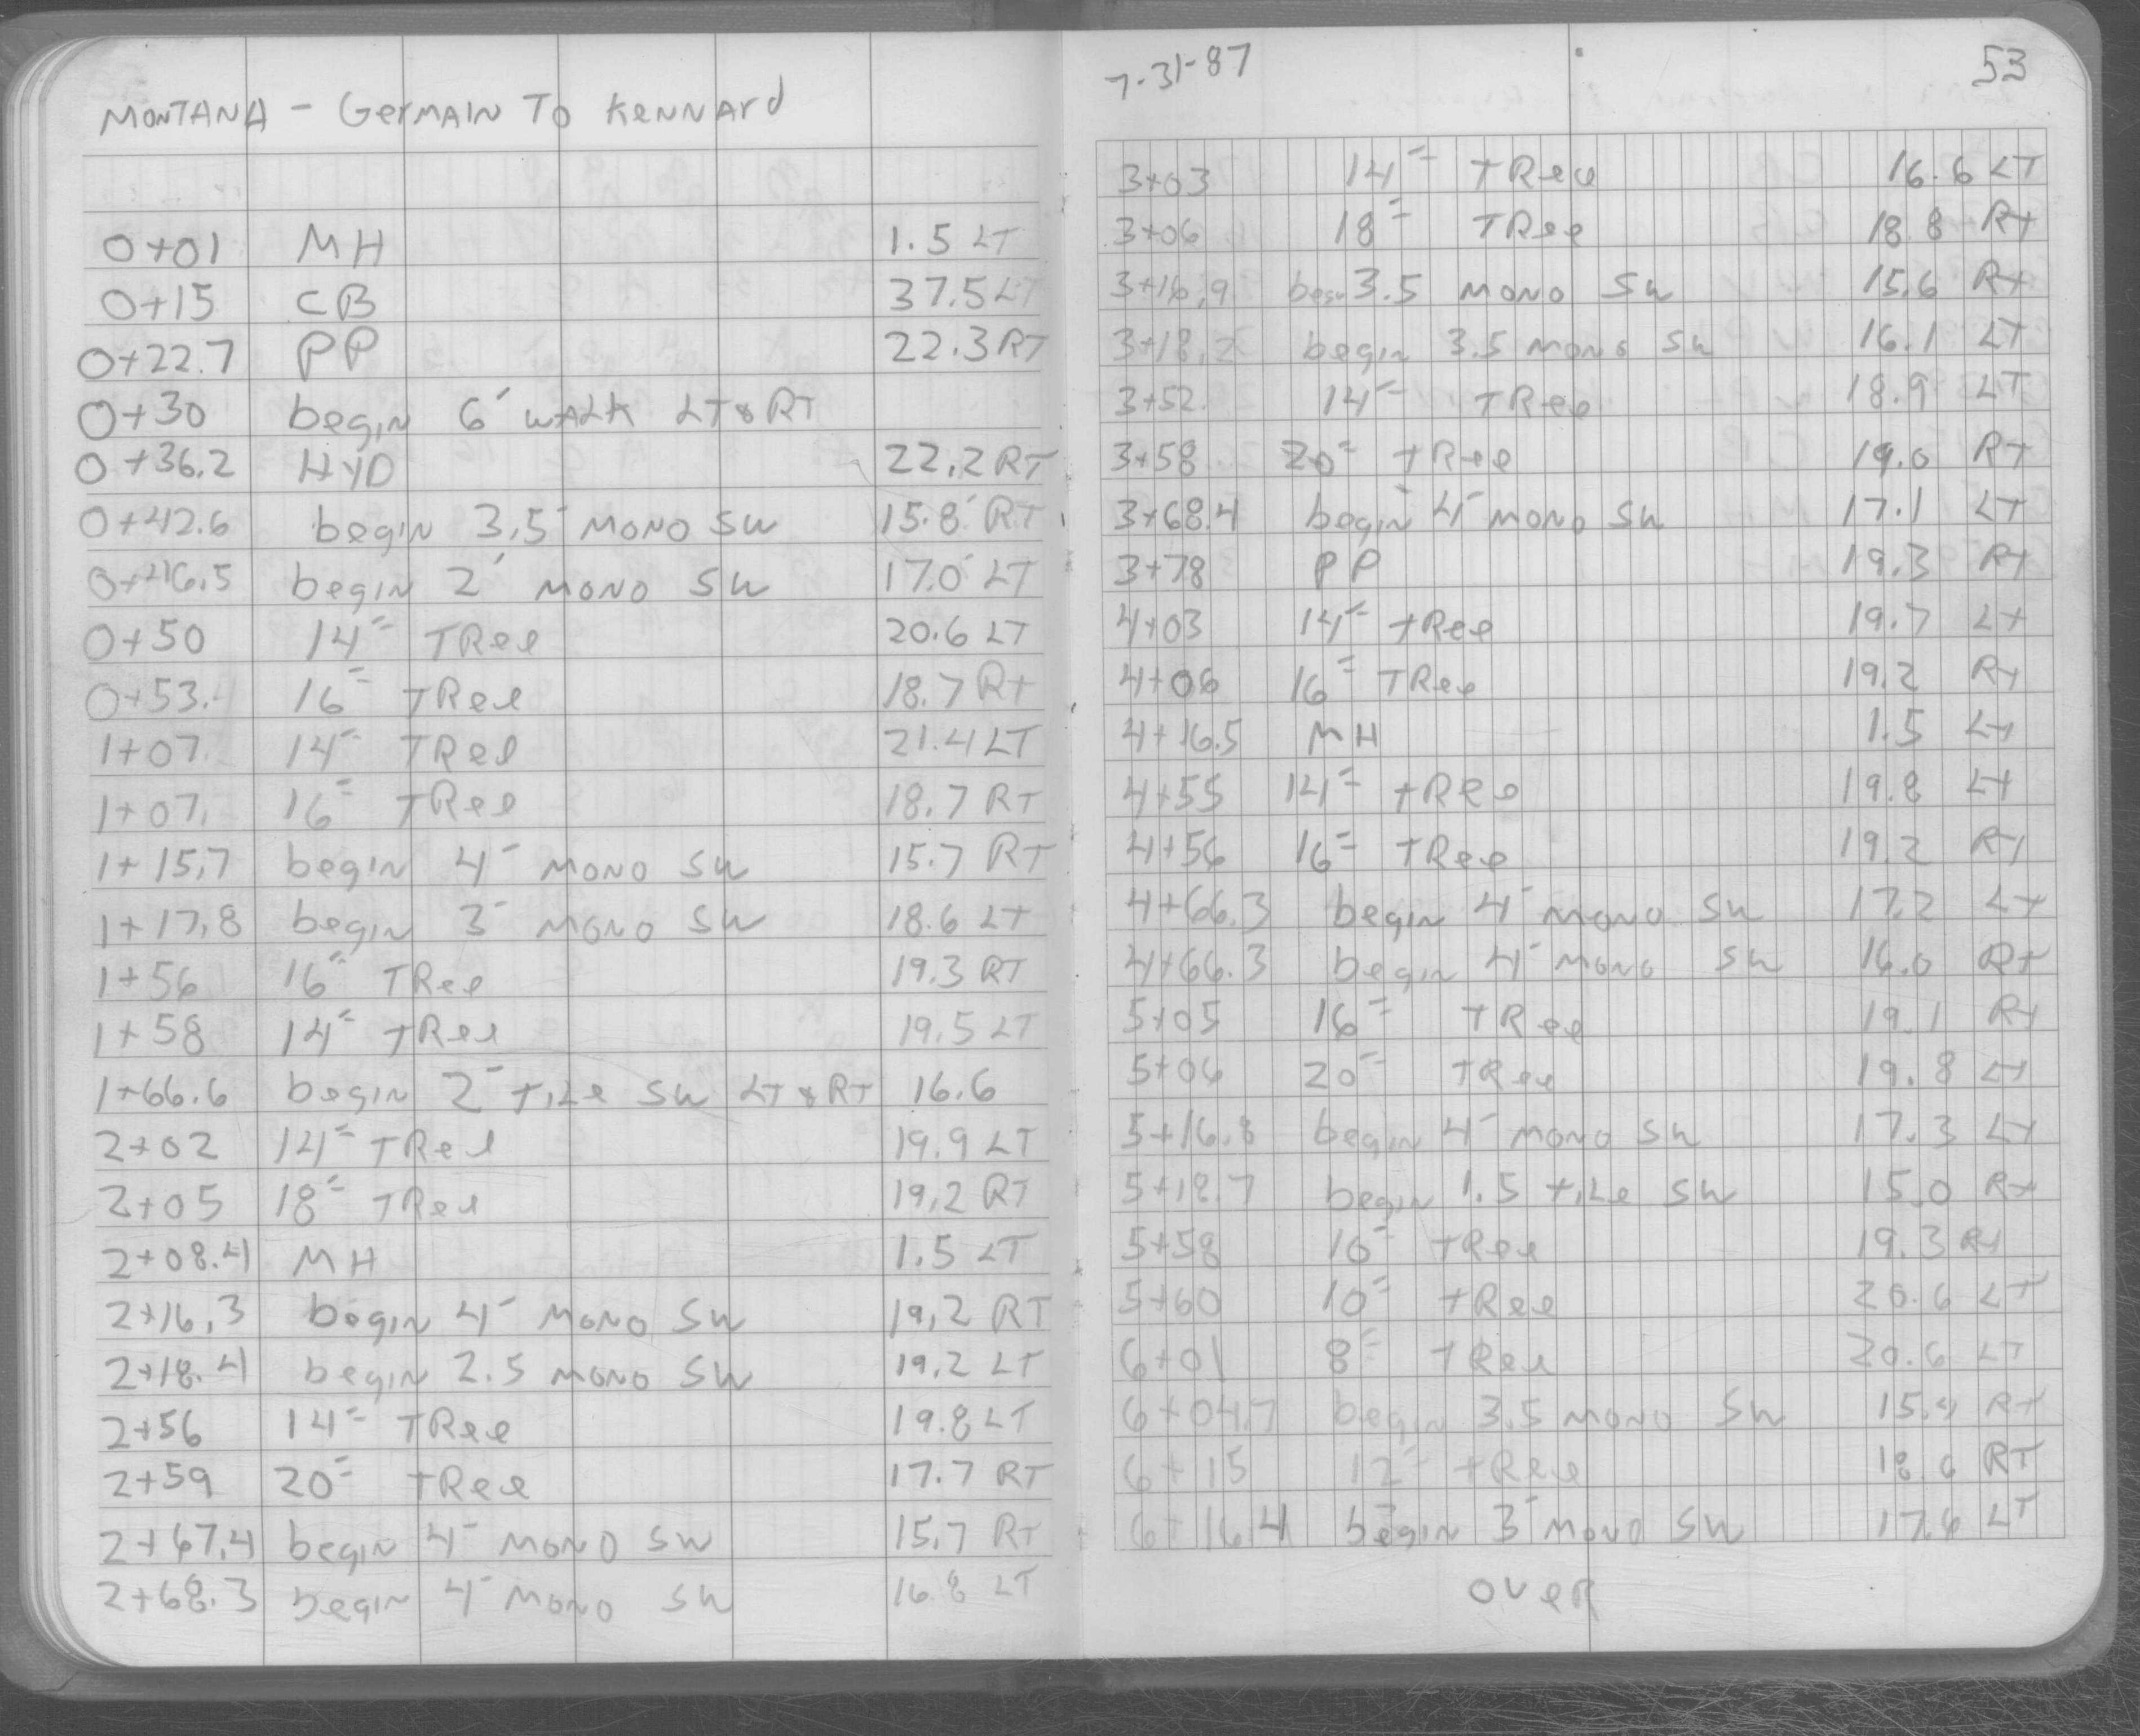 MONTANA - GerMAIN TO KENNArd
0+01 MH 1.5 LT
0+15 CB 37.5 LT
0+22.7 PP 22.3 RT
0+30 begin 6' WALK LT & RT
0+36.2 HYD 22.2 RT
0+42.6 begin 3.5' MONO SW 15.8' RT
0+46.5 begin 2' MONO SW 17.0' LT
0+50 14" TRee 20.6 LT
0+53. 16" TRee 18.7 RT
1+07 14" TRee 21.4 LT
1+07. 16" TRee 18.7 RT
1+15.7 begin 4' MONO SW 15.7 RT
1+17.8 begin 3' MONO SW 18.6 LT
1+56 16" TRee 19.3 RT
1+58 14" TRee 19.5 LT
1+66.6 begin 2' TiLe SW LT & RT 16.6
2+02 14" TRee 19.9 LT
2+05 18" TRee 19.2 RT
2+08.4 MH 1.5 LT
2+16.3 begin 4' MONO SW 19.2 RT
2+18.4 begin 2.5 MONO SW 19.2 LT
2+56 14" TRee 19.8 LT
2+59 20" TRee 17.7 RT
2+67.4 begin 4' MONO SW 15.7 RT
2+68.3 begin 4' MONO SW 16.8 LT
7-31-87 53
3+03 14" TRee 16.6 LT
3+06 18" TRee 18.8 RT
3+16.9 begin 3.5 MONO SW 15.6 RT
3+18.2 begin 3.5 MONO SW 16.1 LT
3+52 14" TRee 18.9 LT
3+58 20" TRee 19.0 RT
3+68.4 begin 4' MONO SW 17.1 LT
3+78 PP 19.3 RT
4+03 14" TRee 19.7 LT
4+06 16" TRee 19.2 RT
4+16.5 MH 1.5 LT
4+55 14" TRee 19.8 LT
4+56 16" TRee 19.2 RT
4+66.3 begin 4' MONO SW 17.2 LT
4+66.3 begin 4' MONO SW 16.0 RT
5+05 16" TRee 19.1 RT
5+06 20" TRee 19.8 LT
5+16.8 begin 4' MONO SW 17.3 LT
5+18.7 begin 1.5 TiLe SW 15.0 RT
5+58 16" TRee 19.3 RT
5+60 10" TRee 20.6 LT
6+01 8" TRee 20.6 LT
6+04.7 begin 3.5 MONO SW RT
6+15 12" TRee 18.6 RT
6+16.4 begin 3' MONO SW 17.6 LT
OVER